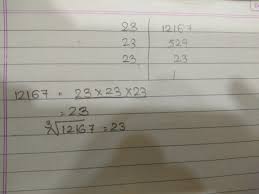 23 | 12167
23 | 529
23 | 23
1
12167 = 23 x 23 x 23
= 23
∛12167 = 23